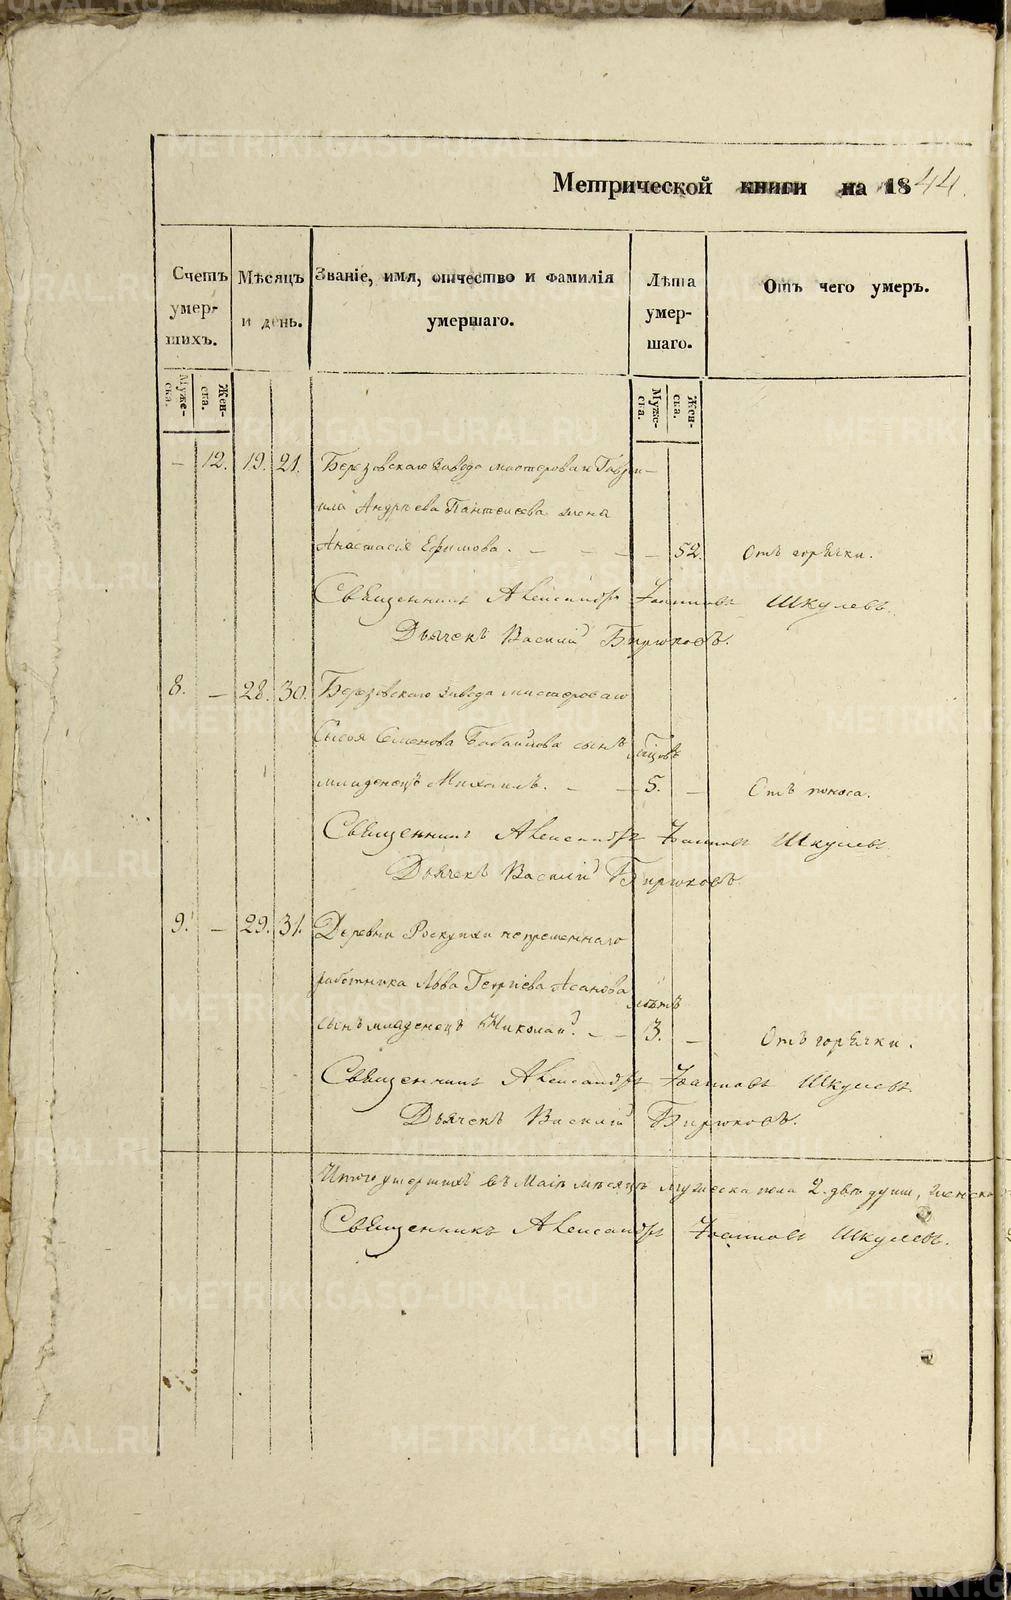 Метрической книги на 1844.
Счетъ умерших.
Мѣсяцъ и день.
Званіе, имя, отчество и фамилія умершаго.
Лѣта умершаго.
Отъ чего умеръ.
Муже-ска.
Жен-ска.
Муже-ска.
Жен-ска.
— 12. 19. 21. Березовскаго завода мастероваго Гаври-
ила Андреева Пантелеева жена
Анастасія Ефимова. — — — — 52. Отъ горячки.
Священникъ Александръ Іоанновъ Шкулевъ.
Дьячекъ Василій Бирюковъ.
8. — 28. 30. Березовскаго завода мастероваго
Семенова сынъ мѣсяцовъ
младенецъ Михаилъ. — — 5. — Отъ поноса.
Священникъ Александръ Іоанновъ Шкулевъ
Дьячекъ Василій Бирюковъ
9. — 29. 31. Деревни непременнаго
работника Льва Георгіева Асанова лѣтъ
сынъ младенецъ Николай. — — 3. — Отъ горячки.
Священникъ Александръ Іоанновъ Шкулевъ
Дьячекъ Василій Бирюковъ.
Итого умершихъ въ Маіѣ мѣсяцѣ мужеска пола 2. двѣ души, женска
Священникъ Александръ Іоанновъ Шкулевъ.
METRIKI.GASO-URAL.RU